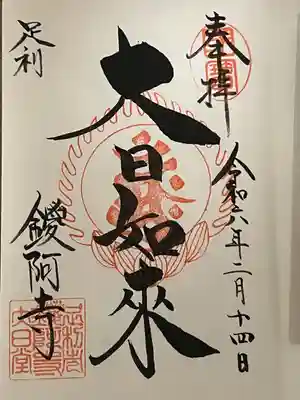 奉拝
令和六年二月十四日
大日如来
足利
鑁阿寺